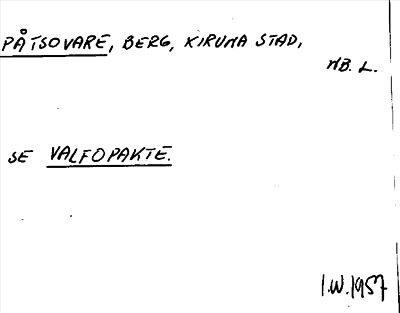 PÅTSOVARE, BERG, KIRUNA STAD,
NB. L.
SE VALFOPAKTE.
I.W.1957